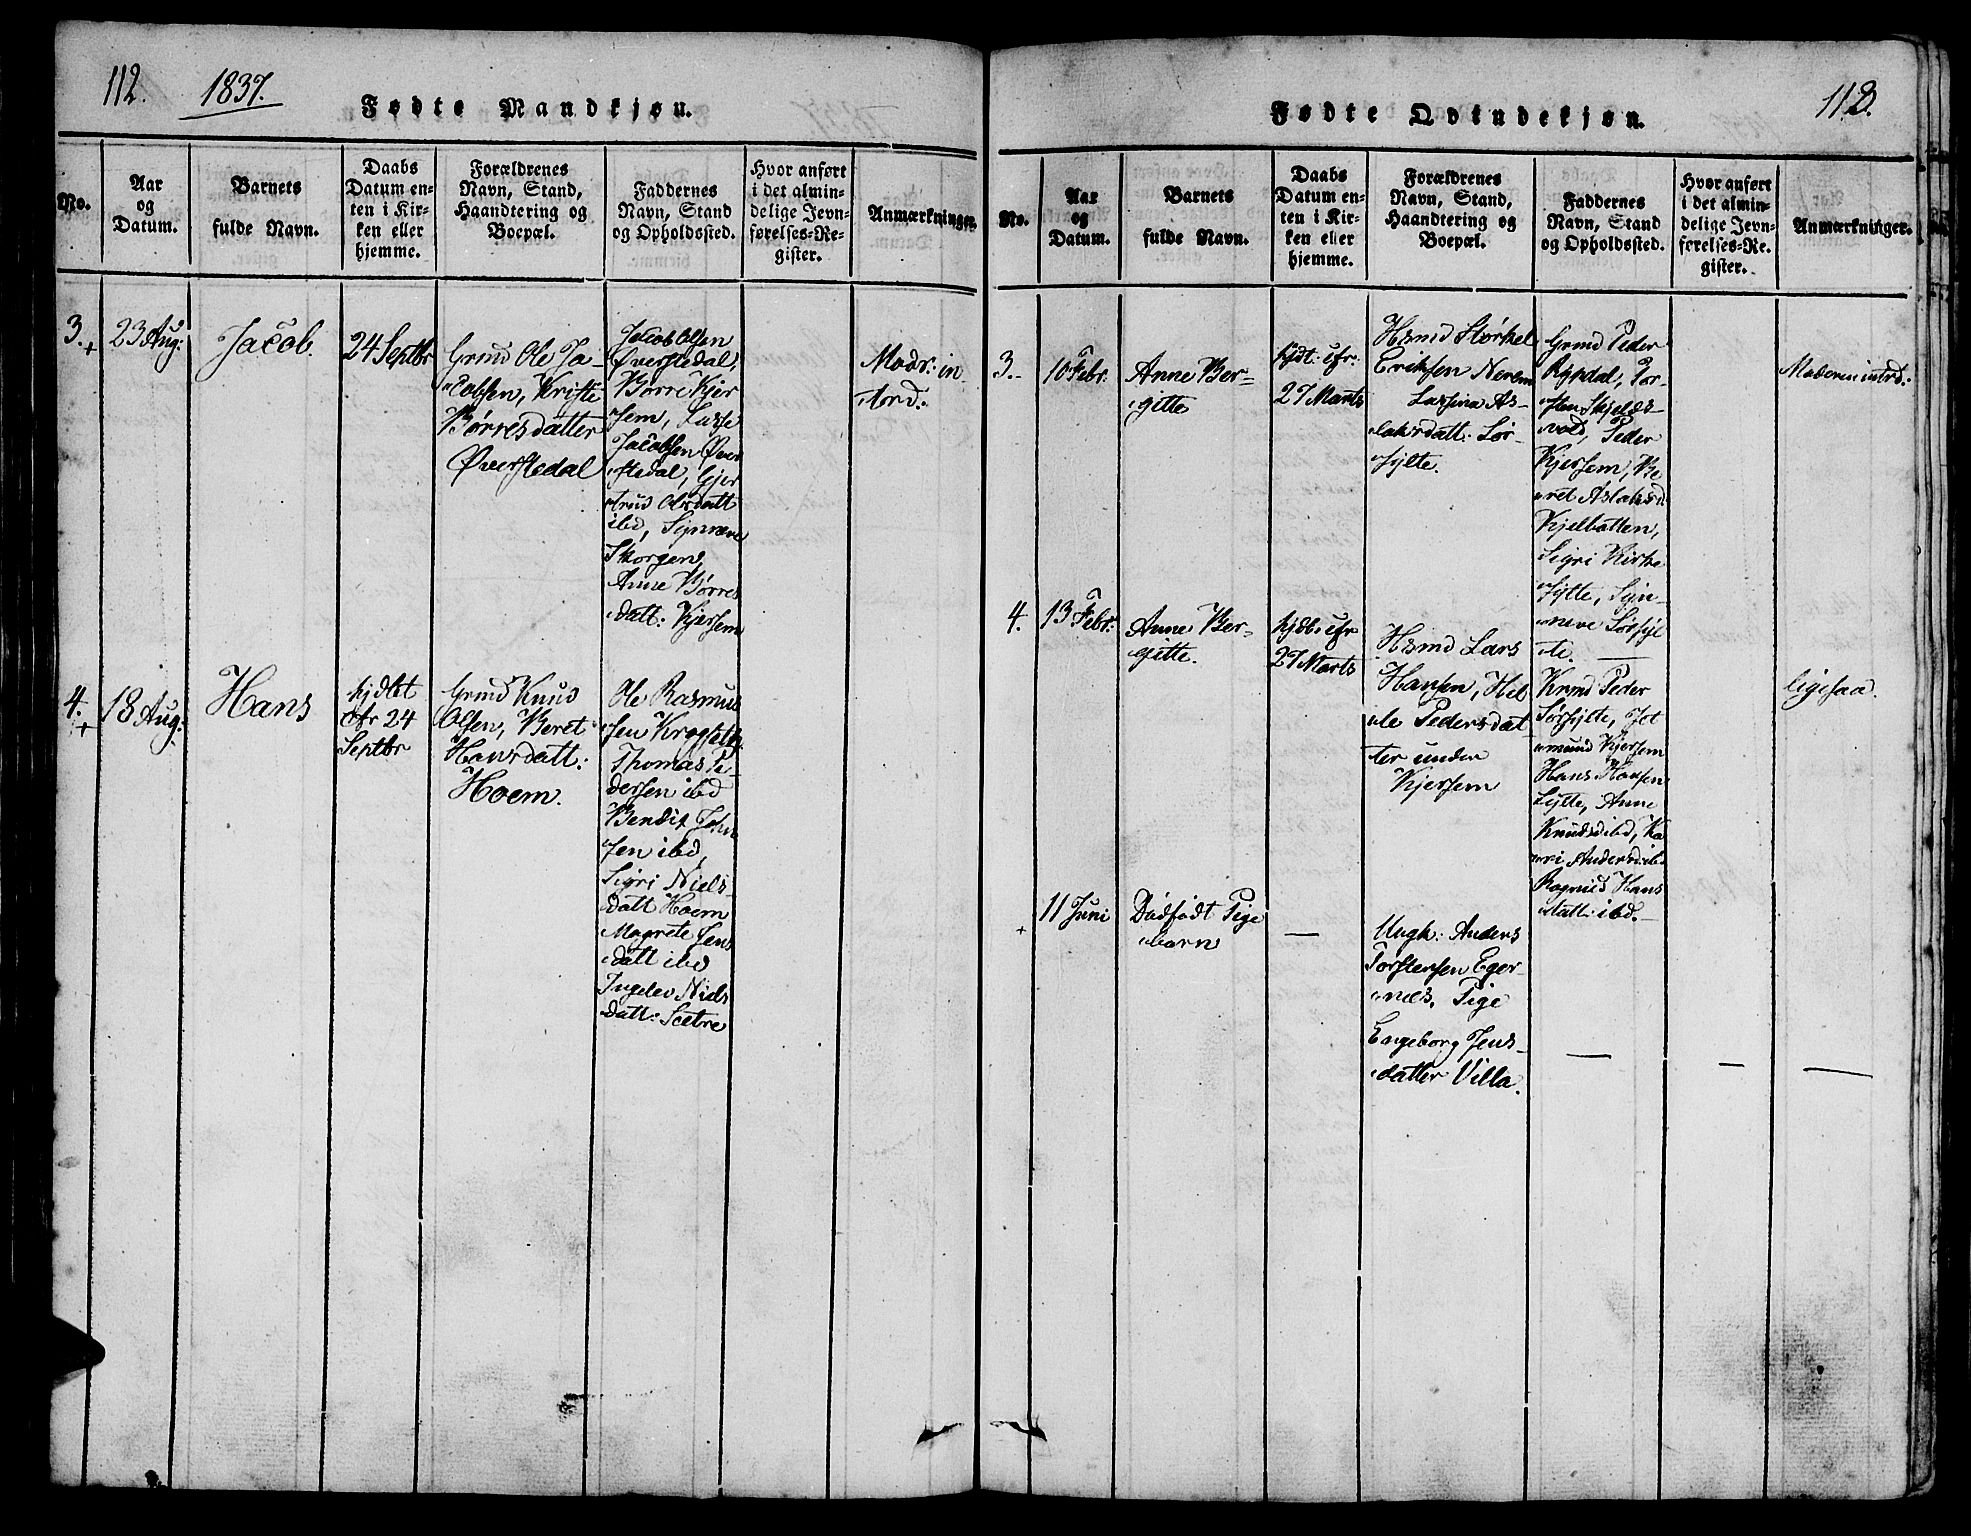 112.
1837.
Fødte Mandkjøn.
No.
Aar
og
Datum.
Barnets
fulde Navn.
Daabs
Datum en-
ten i Kir-
ken eller
hjemme.
Forældrenes
Navn, Stand,
Haandtering og
Boepæl.
Faddernes
Navn, Stand
og Opholdssted.
Hvor anført
i det almin-
delige Jevn-
førelses-Re-
gister.
Anmærkninger.
3.
+
23 Aug:
Jacob.
24 Septbr
Grmd Ole Ja-
cobsen, Kristi
Børresdatter
Øverstedal
Jacob Olsen
Øverstedal,
Børre Kjer
sem, Lasse
Jacobsen Øver
stedal, Gjer
trud Olsdatt
ibd, Synneve
Skorgens,
Anne Børres
datt: Kjersem
Modr: in
trd:
4.
+
18 Aug:
Hans
hjdbt
cfr 24
Septbr
Grmd Knud
Olsen, Beret
Hansdatt:
Hoem.
Ole Rasmus
sen
Thomas Pe-
dersen ibd
Bendix John
sen ibd,
Sigri Niels-
datt Hoem
Magrete Jens
datt ibd
Ingelev Niels
datt: Sætre
Fødte Qvindekjøn.
113.
No.
Aar
og
Datum.
Barnets
fulde Navn.
Daabs
Datum en-
ten i Kir-
ken eller
hjemme.
Forældrenes
Navn, Stand,
Haandtering og
Boepæl.
Faddernes
Navn, Stand
og Opholdssted.
Hvor anført
i det almin-
delige Jevn-
førelses-Re-
gister.
Anmærkninger.
3.
10 Febr:
Anne Ber-
gitte
hjdt: cfr:
27 Marts
Hsmd Størkel
Eriksen Nerem
Lassina As-
laksdatt: Sør-
sylte.
Grmd Peder
Rypdal, Tor-
sten Skjelds-
vold, Peder
Kjersem, Be
ret Aslaksd
Kjelbotten,
Sigri Kirke
sylte, Syn-
neve Sørsyl
te.
Moderen introd:
4.
13 Febr:
Anne Ber-
gitte.
hjdb: cfr
27 Marts
Hsmd Lars
Hansen, Hil
le Pedersdat
ter under
Kjersem
Krmd Peder
Sørsylte, Jet
mund Kjersem
Hans Hansen
Sylte, Anne
Knudsd ibd, Ka
ri Andersd: ib.
Ragnild Hans
datt: ibd.
ligesaa.
+
11 Juni
Dødfødt Pige
barn
—
Ungk: Anders
Torstensen Eger-
næs, Pige
Engeborg Jens-
datter Villa.
—
—
—